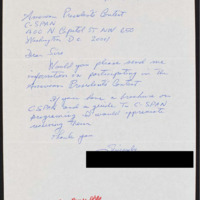 American Presidents Contest
C-SPAN
400 N Capitol ST NW 650
Washington D.C. 20001
Dear Sirs
Would you please send me
information on participating in the
American Presidents Contest.
If you have a brochure on
C-SPAN and a guide to C-SPAN
programing I would appreciate
receiving them
Thank you
Sincerely